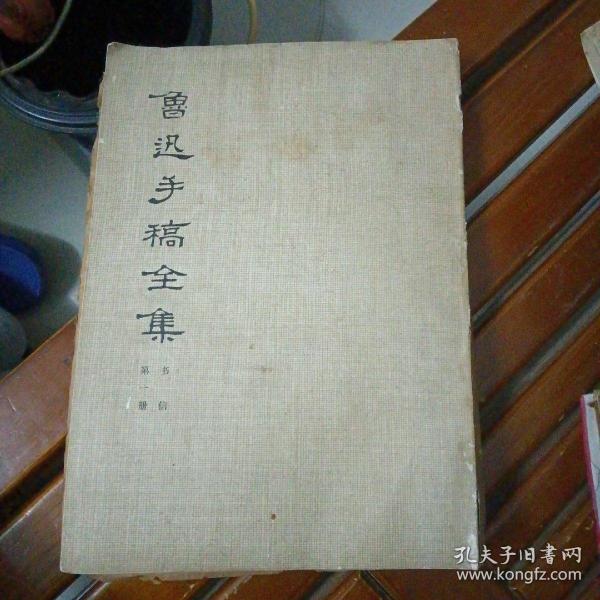 魯迅手稿全集
书信
第一册
孔夫子旧書网
www.kongfz.com